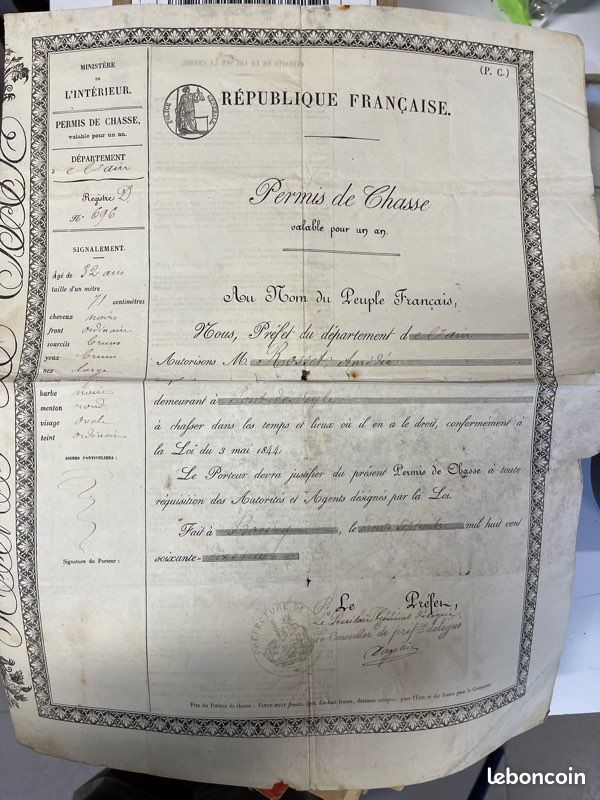 MINISTÈRE
DE
L'INTÉRIEUR.
PERMIS DE CHASSE,
valable pour un an.
DÉPARTEMENT
d e l'ain
Registre D.
N° 696
SIGNALEMENT.
Âgé de 32 ans
taille d'un mètre
71 centimètres
cheveux noirs
front ordinaire
sourcils bruns
yeux bruns
nez large
barbe noire
menton rond
visage ovale
teint ordinaire
SIGNES PARTICULIERS :
Signature du Porteur :
(P. C.)
RÉPUBLIQUE FRANÇAISE.
Permis de Chasse
valable pour un an.
Au Nom du Peuple Français,
Nous, Préfet du département d e l'ain
Autorisons M. Rosset, Amédée
demeurant à Pont-de-Veyle
à chasser dans les temps et lieux où il en a le droit, conformément à
la Loi du 3 mai 1844;
Le Porteur devra justifier du présent Permis de Chasse à toute
réquisition des Autorités et Agents désignés par la Loi.
Fait à Bourg, le septembre mil huit cent
soixante-
Pr Le Préfet,
Le Secrétaire Général délégué
Conseiller de préfre délégué
PRÉFECTURE DE
Prix du Permis de chasse : VINGT-HUIT francs, dont dix-huit francs, décimes compris, pour l'État et dix francs pour la Commune.
leboncoin